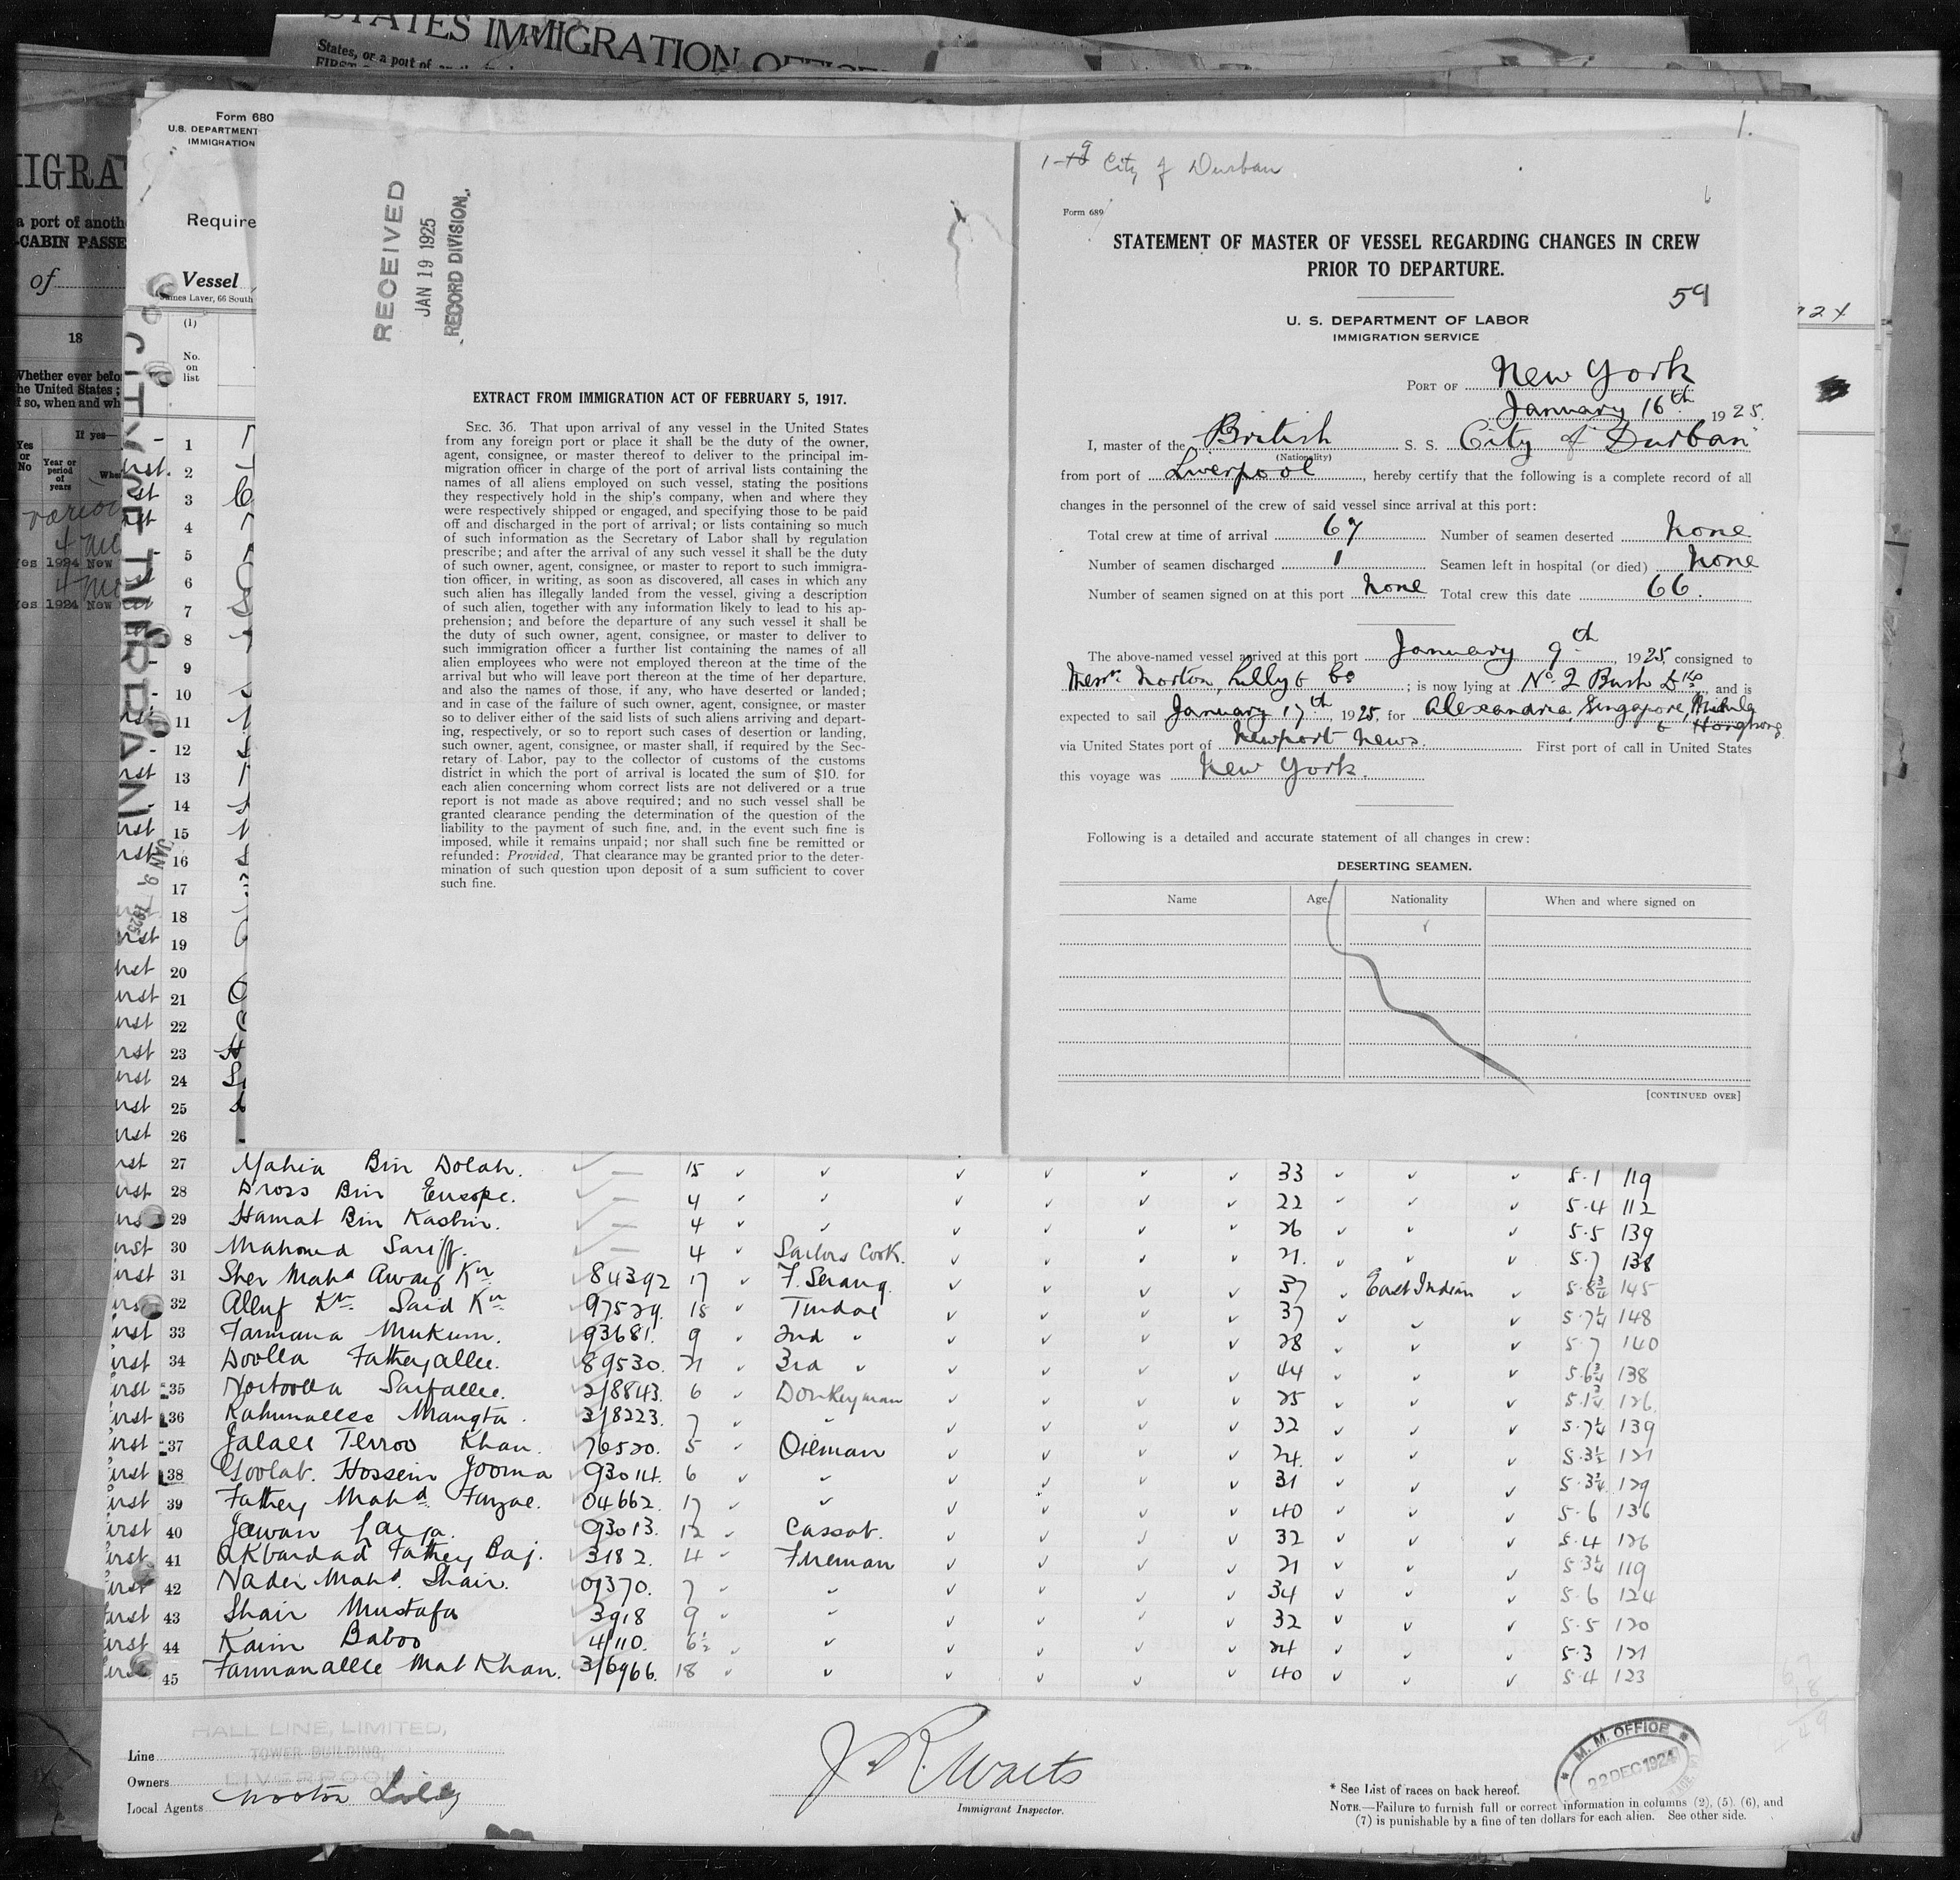 STATES IMMIGRATION OFFICE
States, or a port of
Form 680
U.S. DEPARTMENT
IMMIGRATION
Require
Vessel
James Laver, 66 South
(1)
No.
on
list
IGRA
a port of anoth
-CABIN PASSE
of
18
Whether ever befo
the United States;
f so, when and wh
If yes—
Yes
or
No
Year or
period
of
years
Whe
Yes 1924 New
Yes 1924 New
JAN 9, 1925
1
2
3
4
5
6
7
8
9
10
11
12
13
14
15
16
17
18
19
20
21
22
23
24
25
26
RECEIVED
JAN 19 1925
RECORD DIVISION
EXTRACT FROM IMMIGRATION ACT OF FEBRUARY 5, 1917.
SEC. 36. That upon arrival of any vessel in the United States
from any foreign port or place it shall be the duty of the owner,
agent, consignee, or master thereof to deliver to the principal im-
migration officer in charge of the port of arrival lists containing the
names of all aliens employed on such vessel, stating the positions
they respectively hold in the ship's company, when and where they
were respectively shipped or engaged, and specifying those to be paid
off and discharged in the port of arrival; or lists containing so much
of such information as the Secretary of Labor shall by regulation
prescribe; and after the arrival of any such vessel it shall be the duty
of such owner, agent, consignee, or master to report to such immigra-
tion officer, in writing, as soon as discovered, all cases in which any
such alien has illegally landed from the vessel, giving a description
of such alien, together with any information likely to lead to his ap-
prehension; and before the departure of any such vessel it shall be
the duty of such owner, agent, consignee, or master to deliver to
such immigration officer a further list containing the names of all
alien employees who were not employed thereon at the time of the
arrival but who will leave port thereon at the time of her departure,
and also the names of those, if any, who have deserted or landed;
and in case of the failure of such owner, agent, consignee, or master
so to deliver either of the said lists of such aliens arriving and depart-
ing, respectively, or so to report such cases of desertion or landing,
such owner, agent, consignee, or master shall, if required by the Sec-
retary of Labor, pay to the collector of customs of the customs
district in which the port of arrival is located the sum of $10. for
each alien concerning whom correct lists are not delivered or a true
report is not made as above required; and no such vessel shall be
granted clearance pending the determination of the question of the
liability to the payment of such fine, and, in the event such fine is
imposed, while it remains unpaid; nor shall such fine be remitted or
refunded: Provided, That clearance may be granted prior to the deter-
mination of such question upon deposit of a sum sufficient to cover
such fine.
1.
City of Durban
Form 689
STATEMENT OF MASTER OF VESSEL REGARDING CHANGES IN CREW
PRIOR TO DEPARTURE.
59
U. S. DEPARTMENT OF LABOR
IMMIGRATION SERVICE
PORT OF New York
January 16th 1925.
I, master of the British S. S. City of Durban
(Nationality)
from port of Liverpool, hereby certify that the following is a complete record of all
changes in the personnel of the crew of said vessel since arrival at this port:
Total crew at time of arrival 67 Number of seamen deserted none
Number of seamen discharged 1 Seamen left in hospital (or died) none
Number of seamen signed on at this port none Total crew this date 66.
The above-named vessel arrived at this port January 9th, 1925, consigned to
Messrs Norton, Lilly & Co; is now lying at No. 2 Bush Dks and is
expected to sail January 17th, 1925, for Alexandria, Singapore, Manila
& Hongkong
via United States port of Newport News. First port of call in United States
this voyage was New York.
Following is a detailed and accurate statement of all changes in crew:
DESERTING SEAMEN.
Name Age Nationality When and where signed on
[CONTINUED OVER]
27 Mahia Bin Dolah. — 15 33 5.1 119
28 Dross Bin Eusope. — 4 22 5.4 112
29 Hamat Bin Kasbin. — 4 26 5.5 139
30 Mahomed Sariff. — 4 Sailors Cook. 21. 5.7 138
31 Sher Mahd Awaz Kn 84392 17 F. Serang. 37 East Indian 5.8¾ 145
32 Alluf Kn Said Kn 97529. 18 Tindal 37 5.7¼ 148
33 Farmana Mukum. 93681. 9 2nd " 28 5.7 140
34 Doolla Fatheyallee. 89530. 21 3rd " 44 5.6¾ 138
35 Nortoolla Saifallee. 2/8843. 6 Donkeyman 25 126.
36 Rahmallee Mangta. 3/8223. 7 " 32 5.7¼ 139
37 Jalall Terroo Khan. 76520. 5 Oilman 24. 5.3½ 121
38 Goolab. Hossein Jooma 93014. 6 " 31 129
39 Fathey Mahd Fazal. 04662. 17 " 40 5.6 136
40 Jewan 93013. 12 Cassab. 32 5.4 126
41 Akbardad Fathey Baj. 3182. 4 Fireman 21 5.3¼ 119
42 Nader Mahd. Shair. 01370. 7 " 34 5.6 124
43 Shair Mustafa 3918 9 " 32 5.5 120
44 Kaim Baboo 4110. 6½ " 24 5.3 121
45 Farmanallee Mat Khan. 3/6966. 18 " 40 5.4 123
HALL LINE, LIMITED,
TOWER BUILDING,
LIVERPOOL
Line
Owners
Local Agents Norton Lilly
Immigrant Inspector.
M. M. OFFICE
22 DEC 1924
* See List of races on back hereof.
NOTE.—Failure to furnish full or correct information in columns (2), (5), (6), and
(7) is punishable by a fine of ten dollars for each alien. See other side.